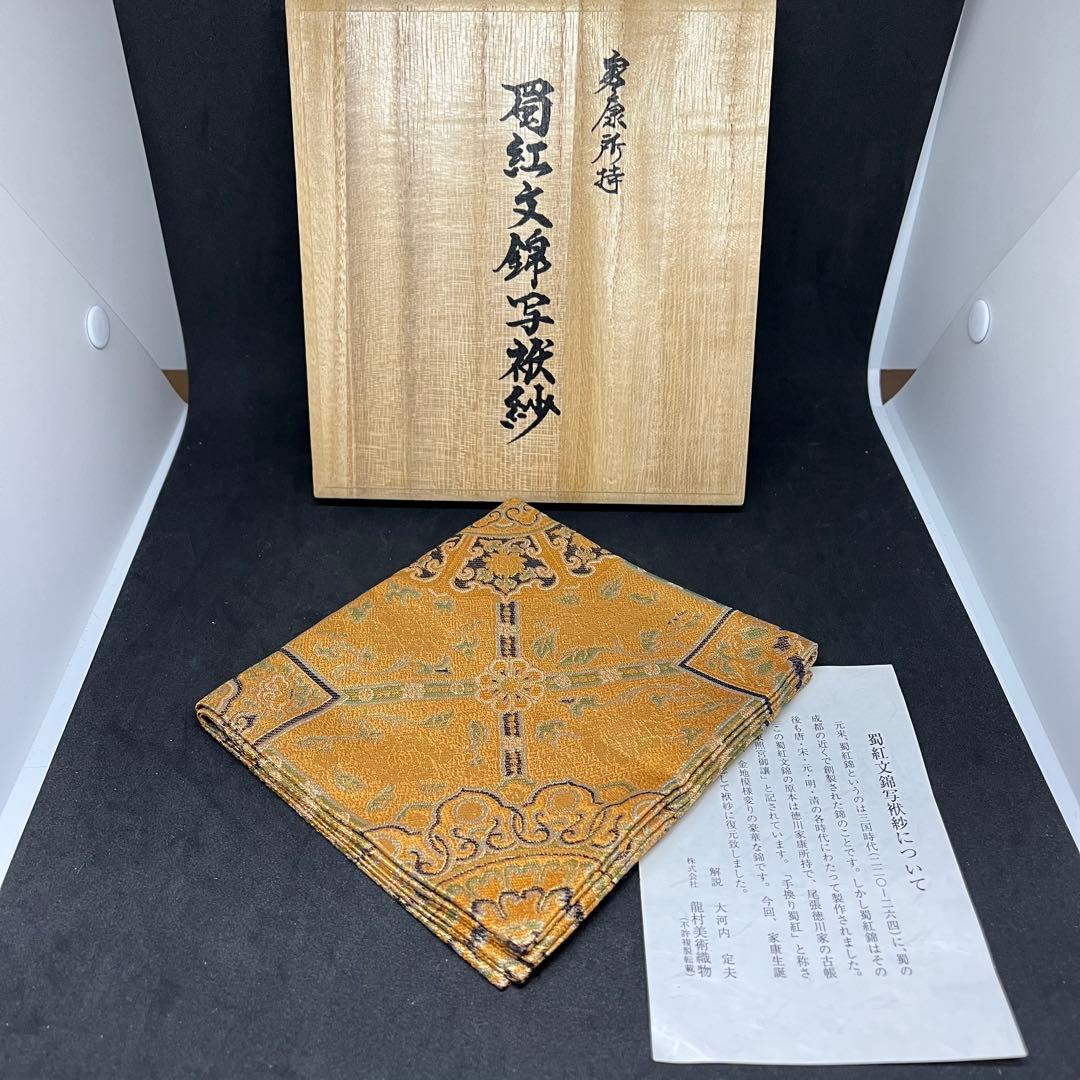 家康所持
蜀紅文錦写袱紗
蜀紅文錦写袱紗について
元来、蜀紅錦というのは三国時代(二二〇ー二六四)に、蜀の
成都の近くで創製された錦のことです。しかし蜀紅錦はその
後も唐・宋・元・明・清の各時代にわたって製作されました。
この蜀紅文錦の原本は徳川家康所持で、尾張徳川家の古帳
照宮御譲」と記されています。「手換り蜀紅」と称さ
金地模様変りの豪華な錦です。今回、家康生誕
して袱紗に復元致しました。
解説 大河内 定夫
株式会社 龍村美術織物
(不許複製転載)